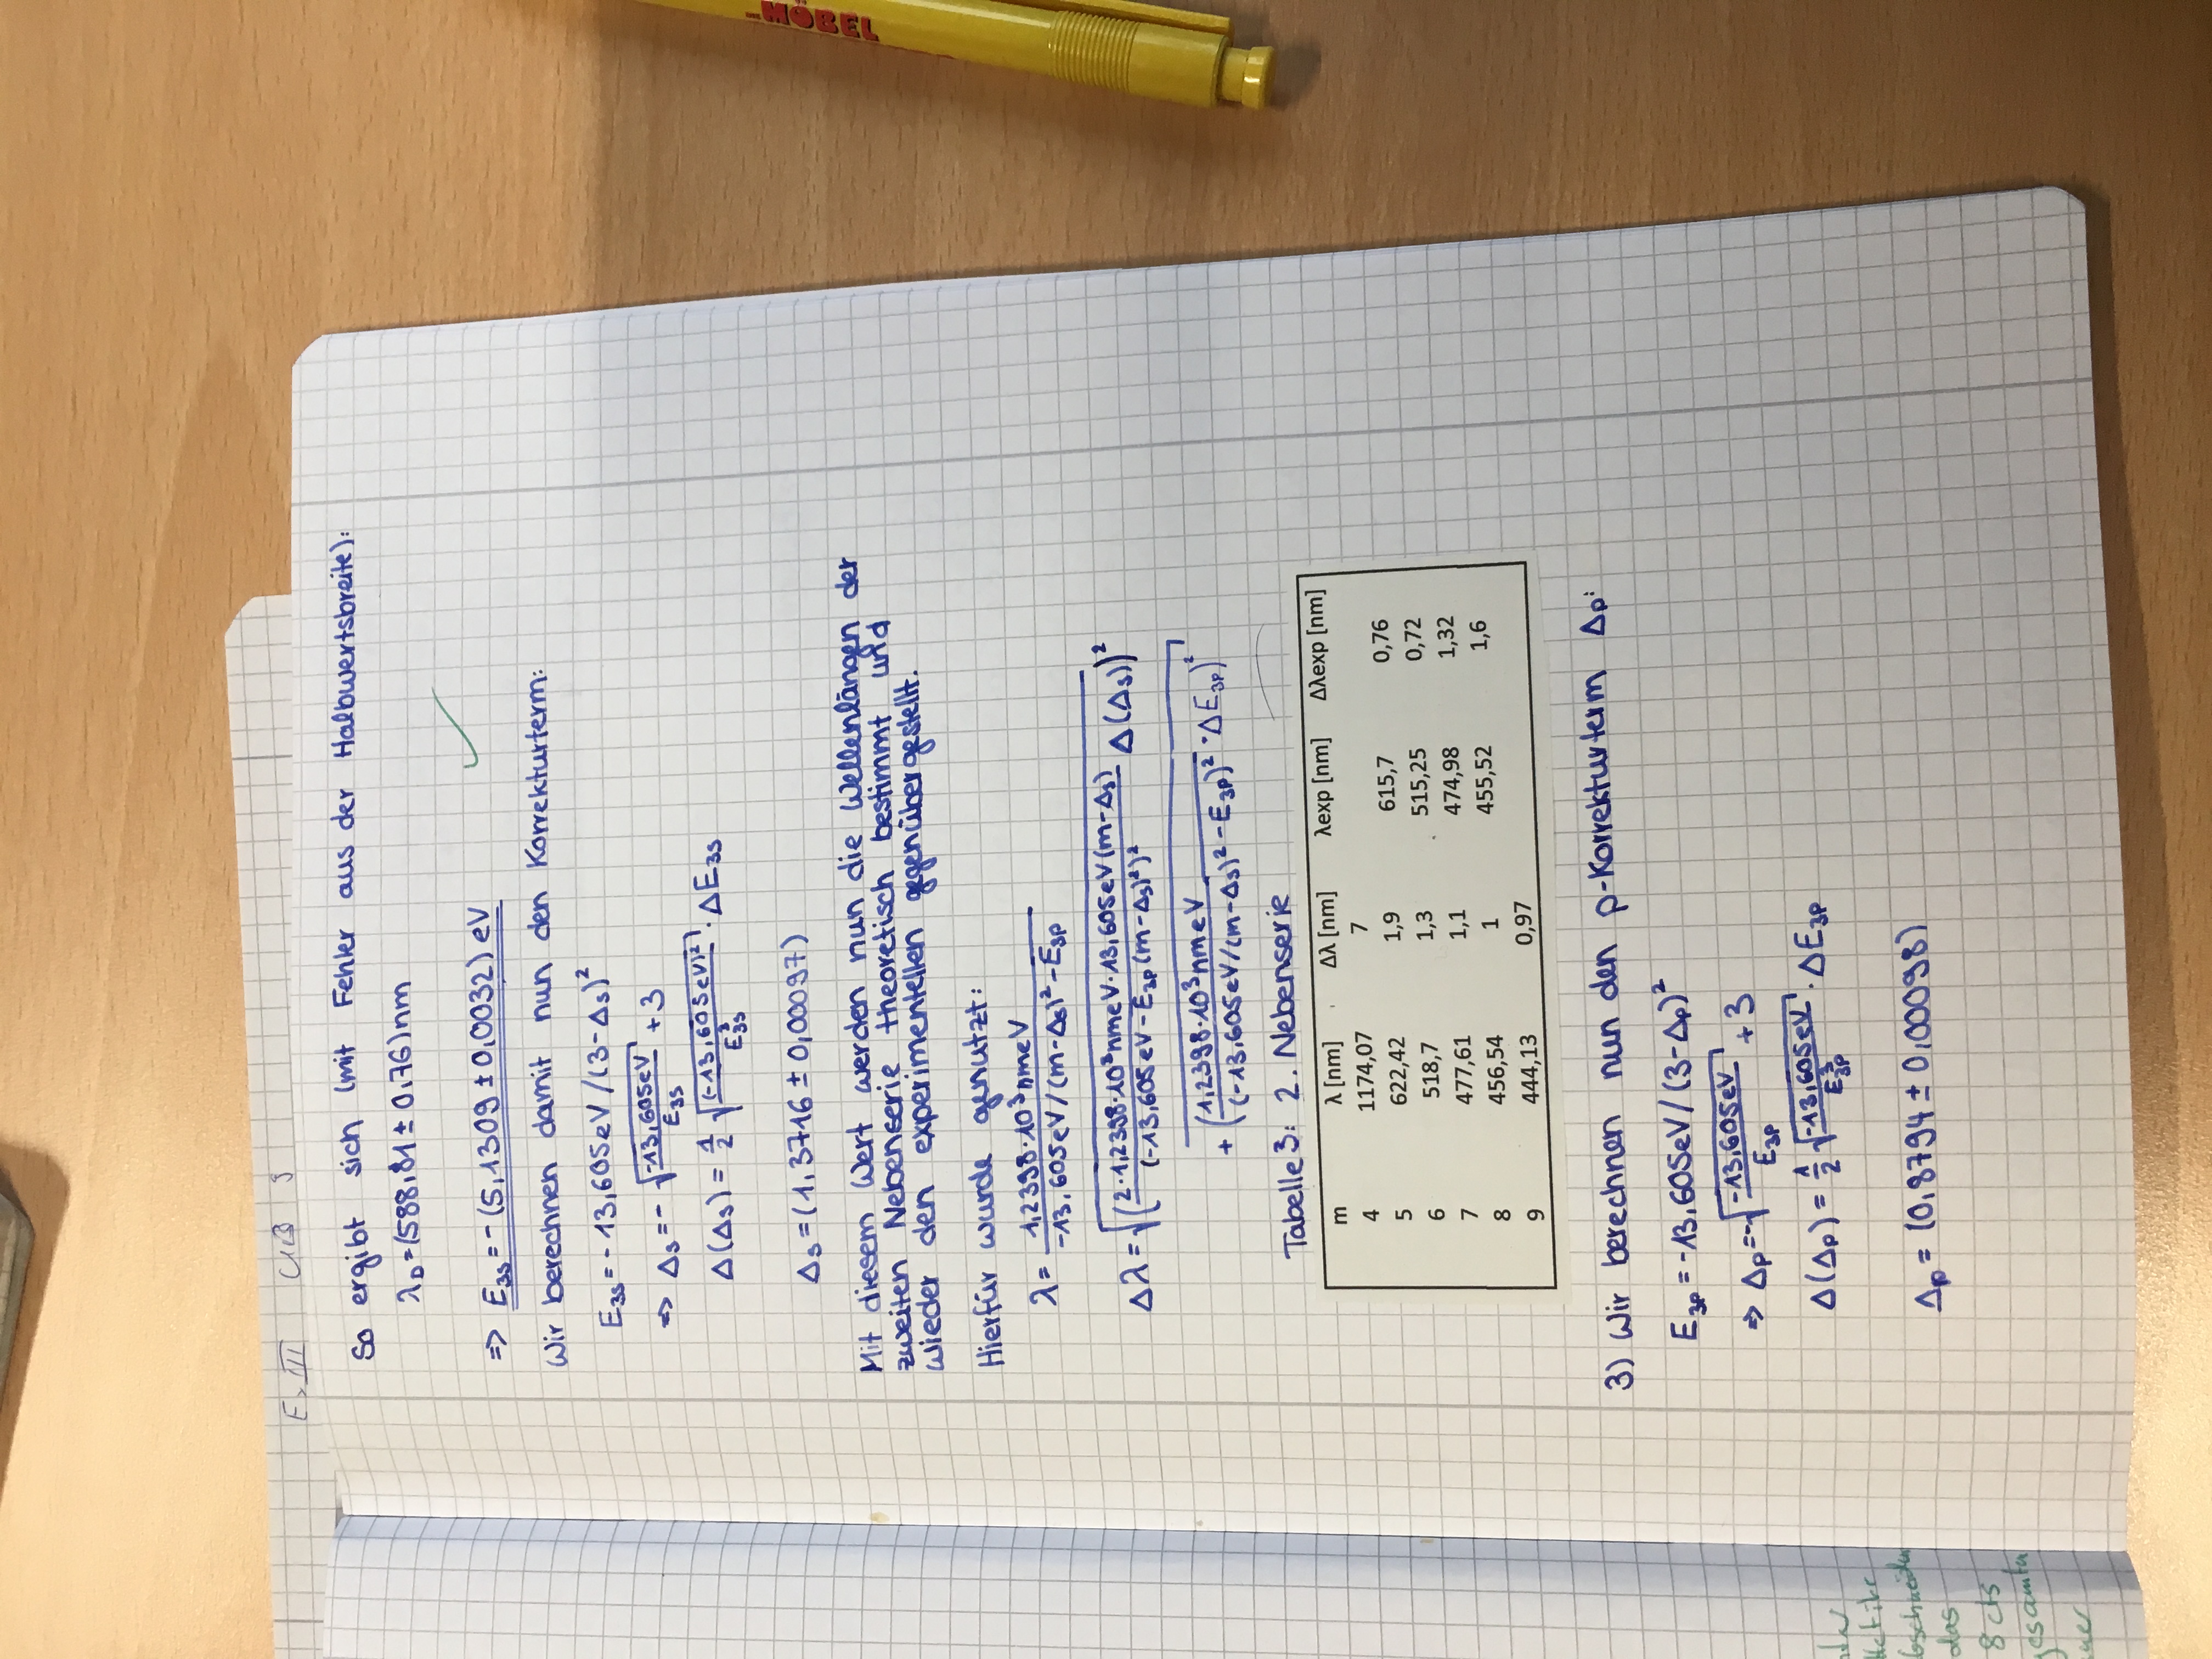 E, III
So ergibt sich (mit Fehler aus der Halbwertsbreite):
λ_D = (588,81 ± 0,76) nm
=> E_3s = -(5,1309 ± 0,0032) eV
Wir berechnen damit nun den Korrekturterm:
E_3s = -13,605eV/(3-Δ_s)²
=> Δ_s = -√(-13,605eV/E_3s) + 3
Δ(Δ_s) = 1/2 √((-13,605eV)²/E_3s³) · ΔE_3s
Δ_s = (1,3716 ± 0,00097)
Mit diesem Wert werden nun die Wellenlängen der
zweiten Nebenserie theoretisch bestimmt und
wieder den experimentellen gegenübergestellt.
Hierfür wurde genutzt:
λ = 1,2398·10³nmeV / (-13,605eV/(m-Δ_s)² - E_3p)
Δλ = √((2·1,2398·10³nmeV·13,605eV(m-Δ_s) / (-13,605eV - E_3p(m-Δ_s)²)² Δ(Δ_s))²
+ (1,2398·10³nmeV / (-13,605eV/(m-Δ_s)² - E_3p)² · ΔE_3p)²)
Tabelle 3: 2. Nebenserie
m λ [nm] Δλ [nm] λexp [nm] Δλexp [nm]
4 1174,07 7
5 622,42 1,9 615,7 0,76
6 518,7 1,3 515,25 0,72
7 477,61 1,1 474,98 1,32
8 456,54 1 455,52 1,6
9 444,13 0,97
3) Wir berechnen nun den p-Korrekturterm Δp:
E_3p = -13,605eV/(3-Δ_p)²
=> Δ_p = -√(-13,605eV/E_3p) + 3
Δ(Δ_p) = 1/2 √(-13,605eV/E_3p³) · ΔE_3p
Δ_p = (0,8794 ± 0,00098)
das
8 cts
gesamten
MÖBEL